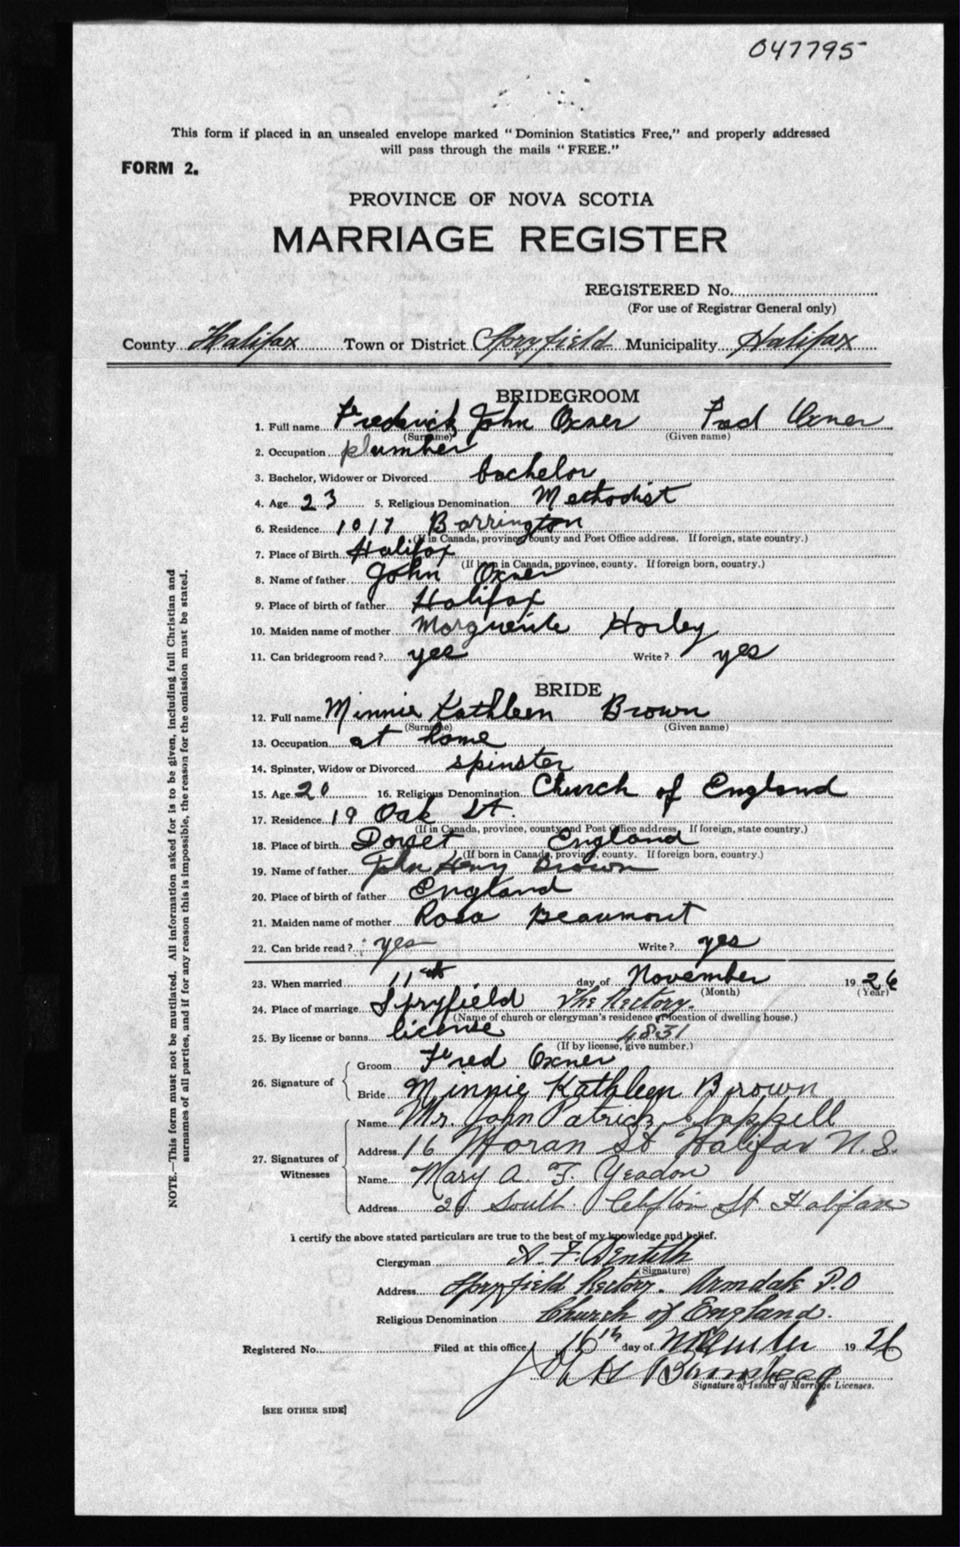 047795
This form if placed in an unsealed envelope marked "Dominion Statistics Free," and properly addressed
will pass through the mails "FREE."
FORM 2.
PROVINCE OF NOVA SCOTIA
MARRIAGE REGISTER
REGISTERED No.
(For use of Registrar General only)
County Halifax Town or District Spryfield Municipality Halifax
BRIDEGROOM
1. Full name Frederick John Oxner Fred Oxner
(Surname) (Given name)
2. Occupation plumber
3. Bachelor, Widower or Divorced bachelor
4. Age 23 5. Religious Denomination Methodist
6. Residence 1017 Barrington
(If in Canada, province, county and Post Office address. If foreign, state country.)
7. Place of Birth Halifax
(If born in Canada, province, county. If foreign born, country.)
8. Name of father John Oxner
9. Place of birth of father Halifax
10. Maiden name of mother Marguerite Horley
11. Can bridegroom read? yes Write? yes
BRIDE
12. Full name Minnie Kathleen Brown
(Surname) (Given name)
13. Occupation at home
14. Spinster, Widow or Divorced spinster
15. Age 20 16. Religious Denomination Church of England
17. Residence 19 Oak St.
(If in Canada, province, county and Post Office address. If foreign, state country.)
18. Place of birth Dorset England
(If born in Canada, province, county. If foreign born, country.)
19. Name of father John Henry Brown
20. Place of birth of father England
21. Maiden name of mother Rosa Beaumont
22. Can bride read? yes Write? yes
23. When married 11th day of November 1926
(Month) (Year)
24. Place of marriage Spryfield The Rectory.
(Name of church or clergyman's residence or location of dwelling house.)
25. By license or banns license 4831
(If by license, give number.)
26. Signature of
Groom Fred Oxner
Bride Minnie Kathleen Brown
27. Signatures of Witnesses
Name Mr. John Patrick
Address 16 Moran St Halifax N.S.
Name Mary A. F. Yeadon
Address South Clifton St. Halifax
I certify the above stated particulars are true to the best of my knowledge and belief.
Clergyman
(Signature)
Address Spryfield Rectory. Armdale P.O
Religious Denomination Church of England.
Registered No. Filed at this office 16th day of November 1926
Signature of Issuer of Marriage Licenses.
[SEE OTHER SIDE]
NOTE.—This form must not be mutilated. All information asked for is to be given, including full Christian and
surnames of all parties, and if for any reason this is impossible, the reason for the omission must be stated.